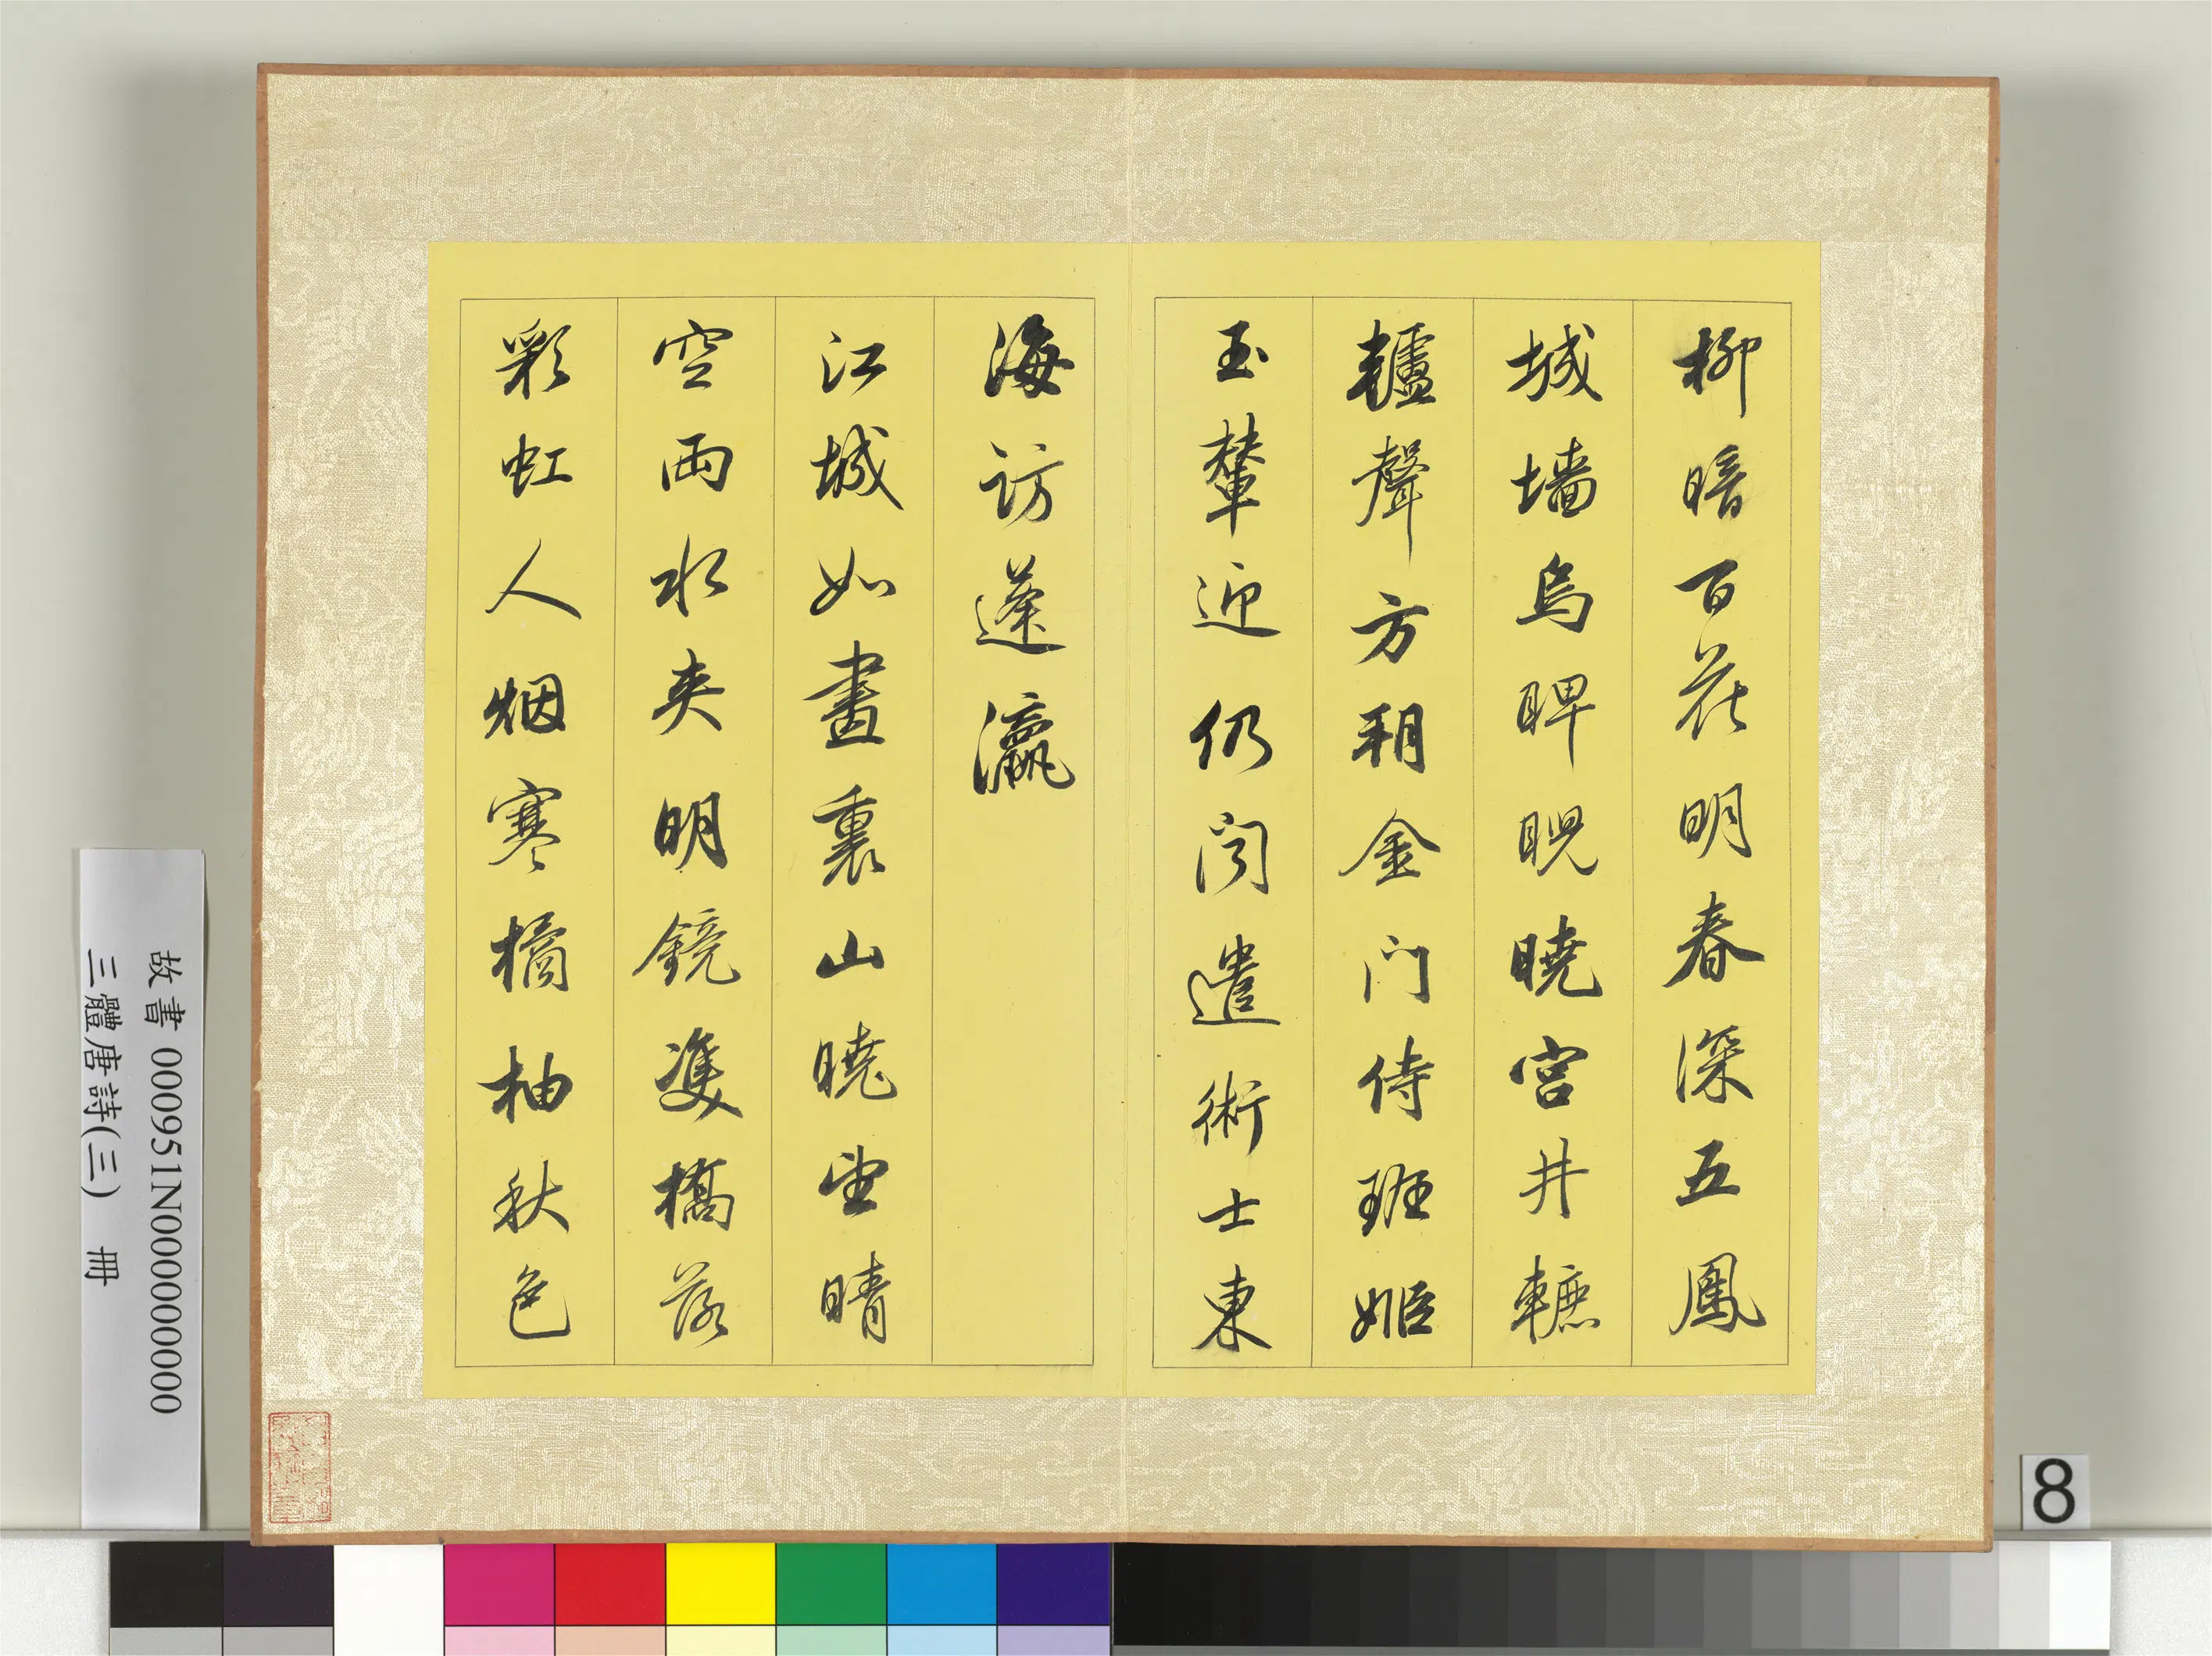 柳暗百花明春深五鳳
城墙烏睥睨曉宮井轆
轤聲方朔金门侍班姬
玉輦迎仍闻遣術士東
海訪蓬瀛
江城如畫裏山曉望晴
空兩水夾明鏡雙橋落
彩虹人烟寒橘柚秋色
故書 000951N000000000
三體唐詩(三) 冊
8